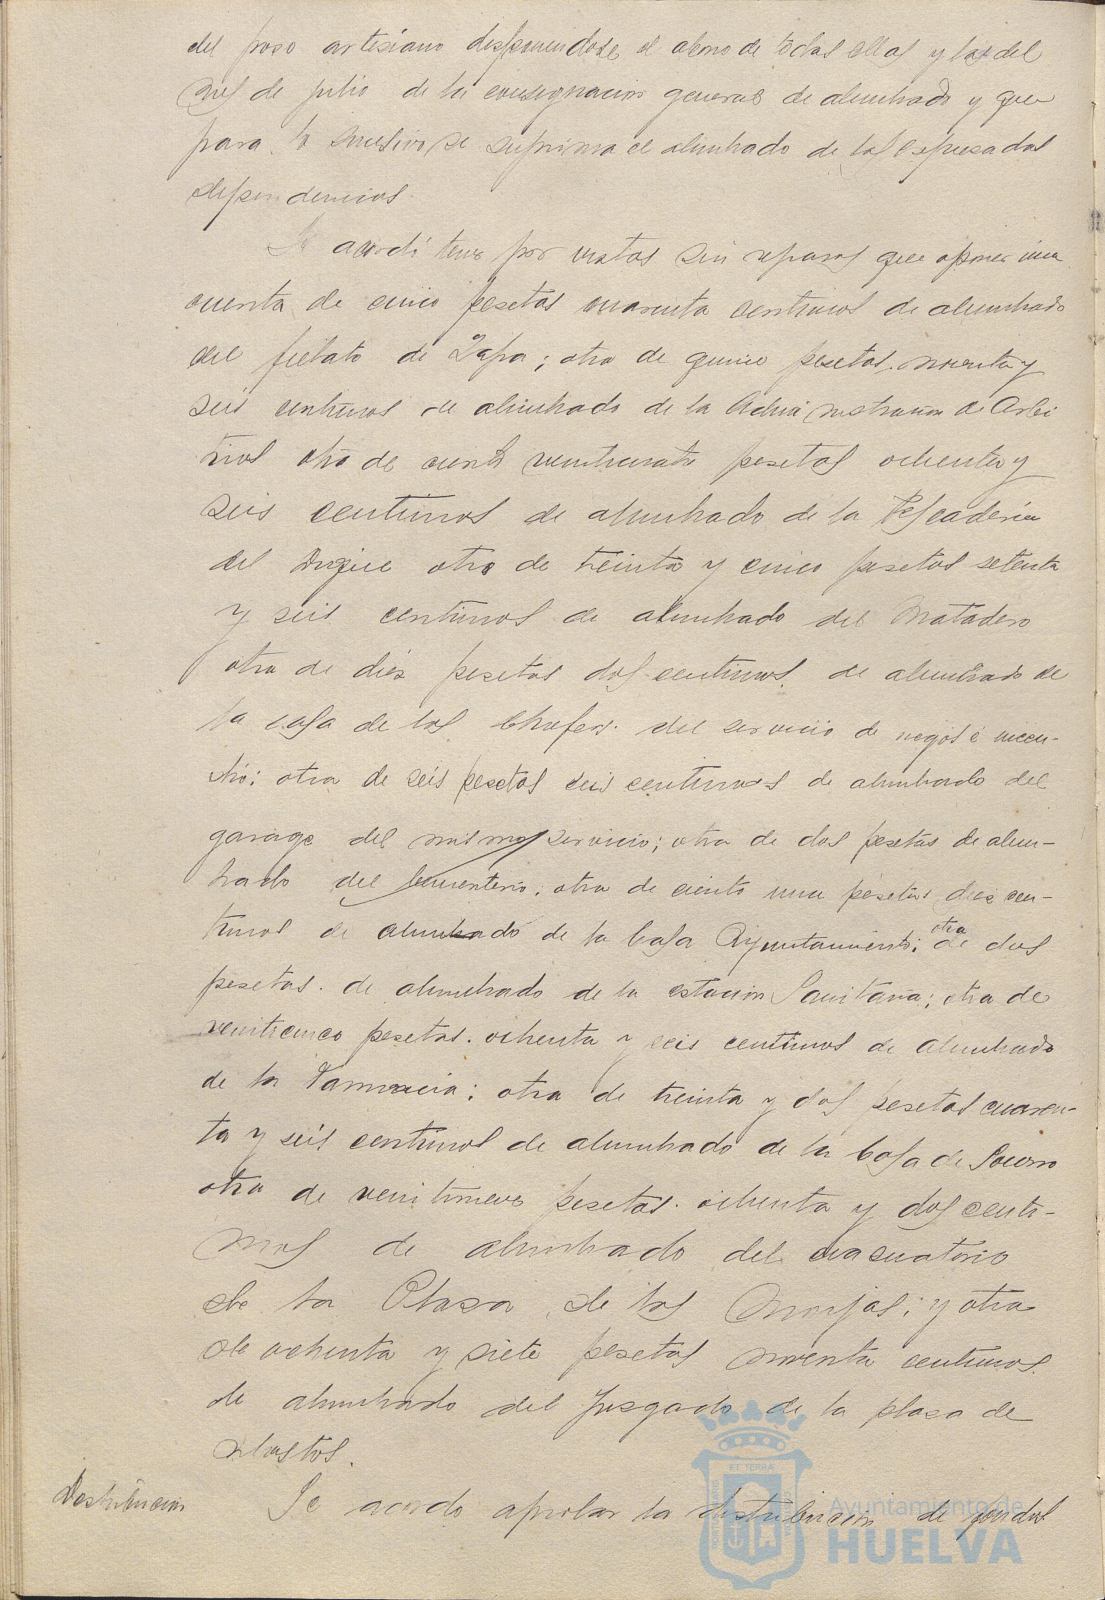 del poso artesiano disponiendose el abono de todas ellas y las del
mes de julio de la consignacion general de alumbrado y que
para lo sucesivo se suprima el alumbrado de las espresadas
dependencias.
Se acordó tener por vistas sin reparos que oponer una
cuenta de cinco pesetas cuarenta centimos de alumbrado
del fielato de Zafra; otra de quince pesetas noventa y
seis centimos de alumbrado de la Administracion de Arbi
trios otra de ciento veinticuatro pesetas ochenta y
seis centimos de alumbrado de la Pescaderia
del Dique otra de treinta y cinco pesetas setenta
y seis centimos de alumbrado del Matadero
otra de diez pesetas dos centimos de alumbrado de
la casa de los Chofers del servicio de riegos é incen-
dio; otra de seis pesetas seis centimos de alumbrado del
garage del mismo servicio; otra de dos pesetas de alum-
brado del Cementerio; otra de ciento una pesetas diez cen-
timos de alumbrado de la Casa Ayuntamiento; otra de dos
pesetas de alumbrado de la estacion Sanitaria; otra de
veinticinco pesetas ochenta y seis centimos de alumbrado
de la Farmacia; otra de treinta y dos pesetas cuaren-
ta y seis centimos de alumbrado de la Casa de Socorro
otra de veintinueve pesetas ochenta y dos centi-
mos de alumbrado del evacuatorio
de la Plaza de las Monjas; y otra
de ochenta y siete pesetas noventa centimos
de alumbrado del Juzgado de la plaza de
abastos.
Distribucion Se acordo aprobar la distribucion de fondos
Ayuntamiento de
HUELVA